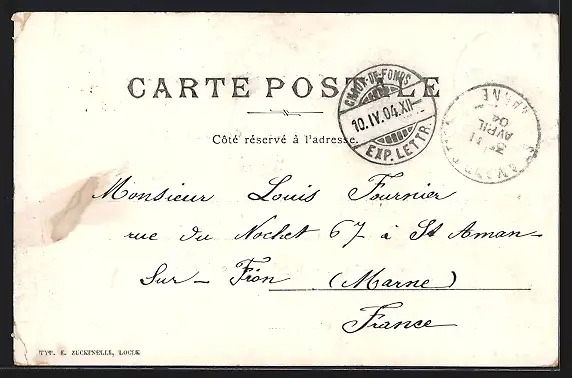 CARTE POSTALE
CH-AUX-DE-FONDS
10.IV.04.XII
EXP. LETTR.
3E 11
AVRIL
04
MARNE
Côté réservé à l'adresse.
Monsieur Louis Fournier
rue du Nochet 67 à St Aman-
Sur-Fion (Marne)
France
TYP. E. ZUCKINELLI, LOCLE